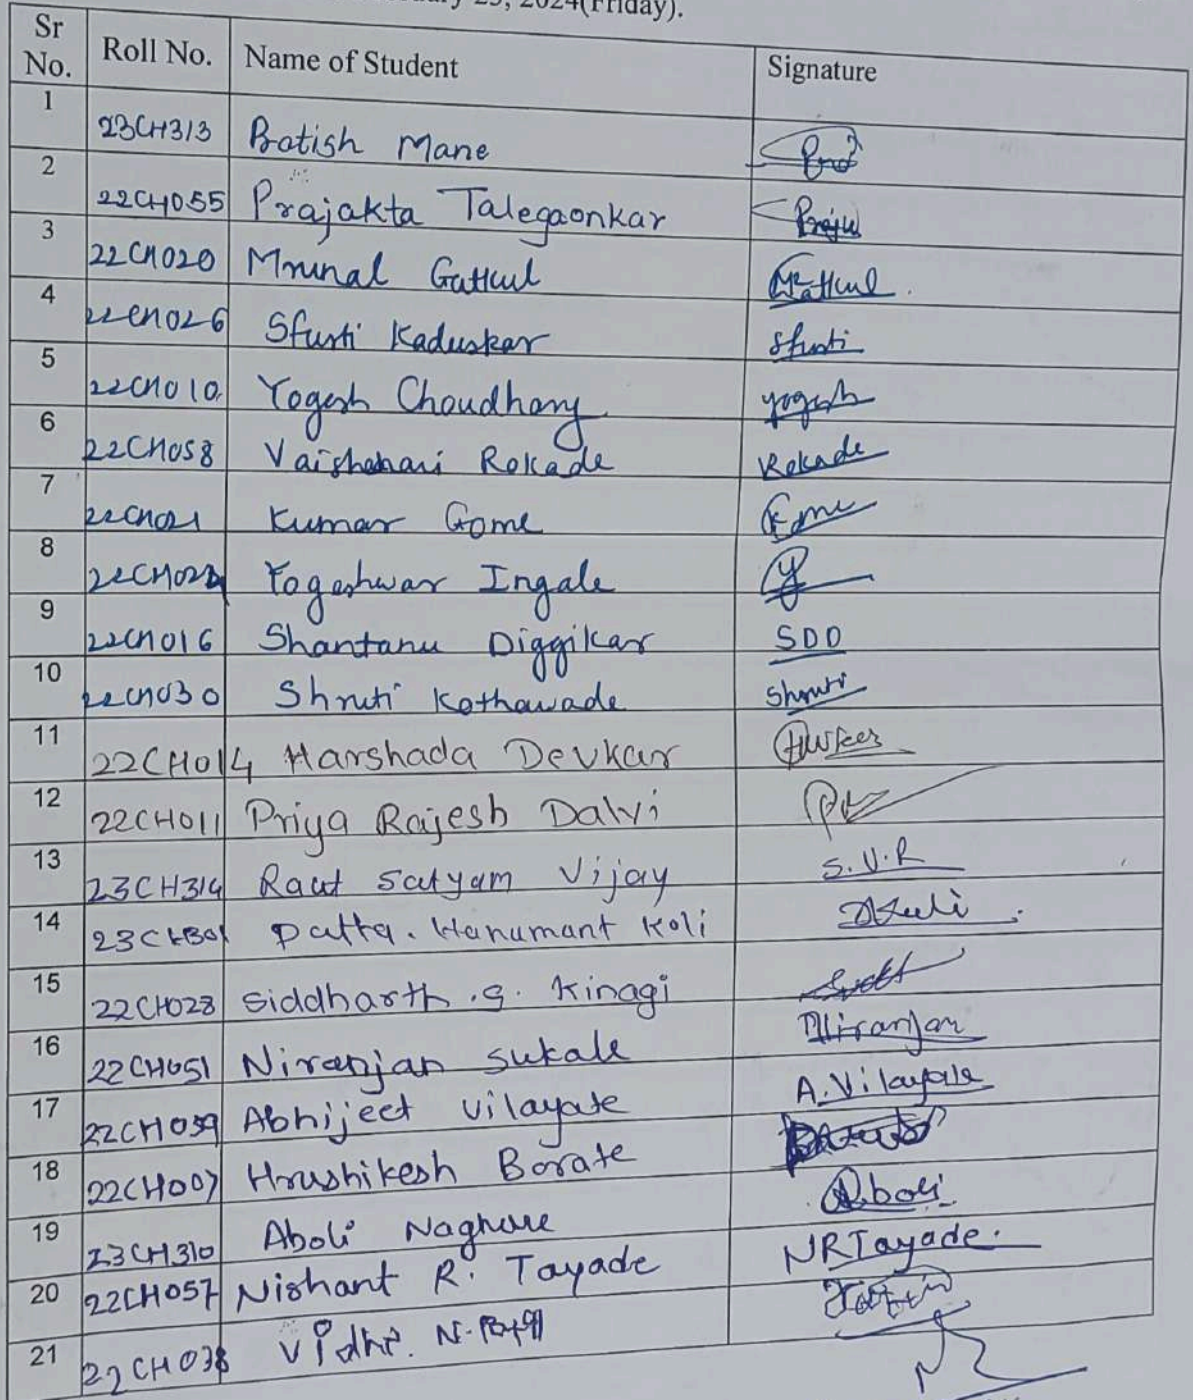 23, 2024(Friday).
Sr No. Roll No. Name of Student Signature
1 23CH313 Pratish Mane
2 22CH055 Prajakta Talegaonkar Praju
3 22CH020 Mrunal Gatkul Gatkul.
4 22CH026 Sfurti Kaduskar Sfurti
5 22CH010 Yogesh Choudhary yogesh
6 22CH058 Rokade Rokade
7 22CH021 Kumar Gome Gome
8 Yogeshwar Ingale
9 22CH016 Shantanu Diggikar SDD
10 22CH030 Shruti Kothawade Shruti
11 22CH014 Harshada Devkar
12 22CH011 Priya Rajesh Dalvi
13 23CH314 Raut Satyam Vijay S.V.R
14 Datta. Hanumant Koli DKoli.
15 22CH028 Siddharth .S. Kinagi
16 22CH051 Niranjan Sukale Niranjan
17 22CH059 Abhijeet Vilayate A.Vilayate
18 22CH007 Hrushikesh Borate
19 23CH310 Aboli Naghure Aboli.
20 22CH057 Nishant R. Tayade NRTayade.
21 22CH038 Vidhi. N.